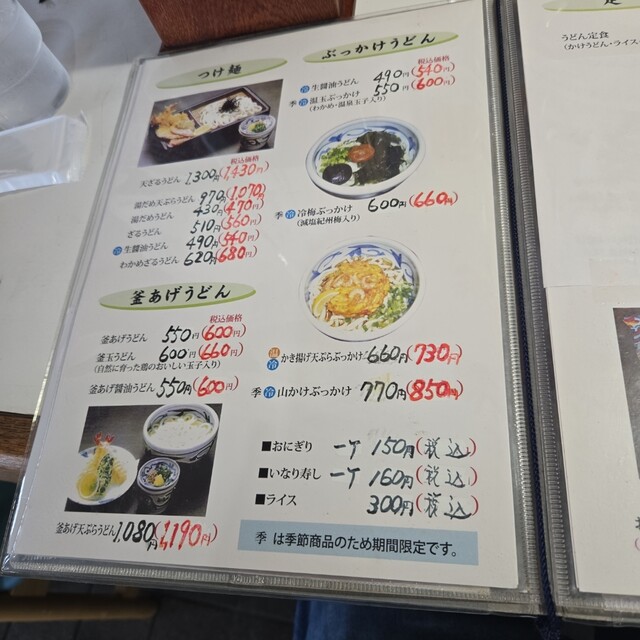 つけ麺
税込価格
天ざるうどん 1,300円(1,430円)
税込価格
湯だめ天ぷらうどん 970円(1,070円)
湯だめうどん 430円(470円)
ざるうどん 510円(560円)
冷 生醤油うどん 490円(540円)
わかめざるうどん 620円(680円)
釜あげうどん
税込価格
釜あげうどん 550円(600円)
釜玉うどん 600円(660円)
(自然に育った鶏のおいしい玉子入り)
釜あげ醤油うどん 550円(600円)
釜あげ天ぷらうどん 1,080円(1,190円)
ぶっかけうどん
税込価格
冷 生醤油うどん 490円(540円)
季 冷 温玉ぶっかけ 550円(600円)
(わかめ・温泉玉子入り)
季 冷 冷梅ぶっかけ 600円(660円)
(減塩紀州梅入り)
温 冷 かき揚げ天ぷらぶっかけ 660円(730円)
季 冷 山かけぶっかけ 770円(850円)
■おにぎり 一ケ 150円(税込)
■いなり寿し 一ケ 160円(税込)
■ライス 300円(税込)
季 は季節商品のため期間限定です。
うどん定食
(かけうどん・ライス